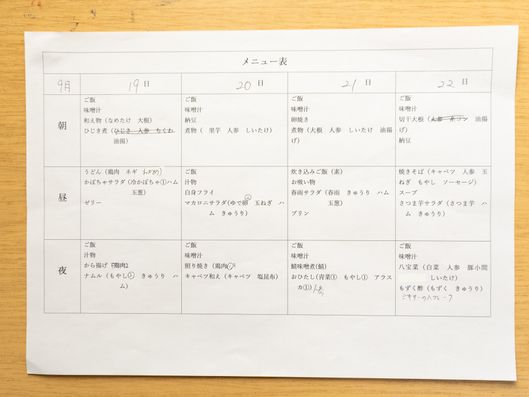 メニュー表
9月 19日 20日 21日 22日
朝
ご飯
味噌汁
和え物（なめたけ 大根）
ひじき煮（ひじき 人参 ちくわ
油揚）
ご飯
味噌汁
納豆
煮物（ 里芋 人参 しいたけ）
ご飯
味噌汁
卵焼き
煮物（大根 人参 しいたけ 油揚
げ）
ご飯
味噌汁
切干大根（ 油揚
げ）
納豆
昼
うどん（鶏肉 ネギ
かぼちゃサラダ（冷かぼちゃ① ハム
玉葱）
ゼリー
ご飯
汁物
白身フライ
マカロニサラダ（ゆで卵 玉ねぎ ハ
ム きゅうり）
炊き込みご飯（素）
お吸い物
春雨サラダ（春雨 きゅうり ハム
玉葱）
プリン
焼きそば（キャベツ 人参 玉
ねぎ もやし ソーセージ）
スープ
さつま芋サラダ（さつま芋 ハ
ム きゅうり）
夜
ご飯
汁物
から揚げ（鶏肉）
ナムル（もやし きゅうり ハ
ム）
ご飯
味噌汁
照り焼き（鶏肉
キャベツ和え（キャベツ 塩昆布）
ご飯
味噌汁
鯖味噌煮（鯖）
おひたし（青菜① もやし① アラス
カ①）
ご飯
味噌汁
八宝菜（白菜 人参 豚小間
しいたけ）
もずく酢（もずく きゅうり）